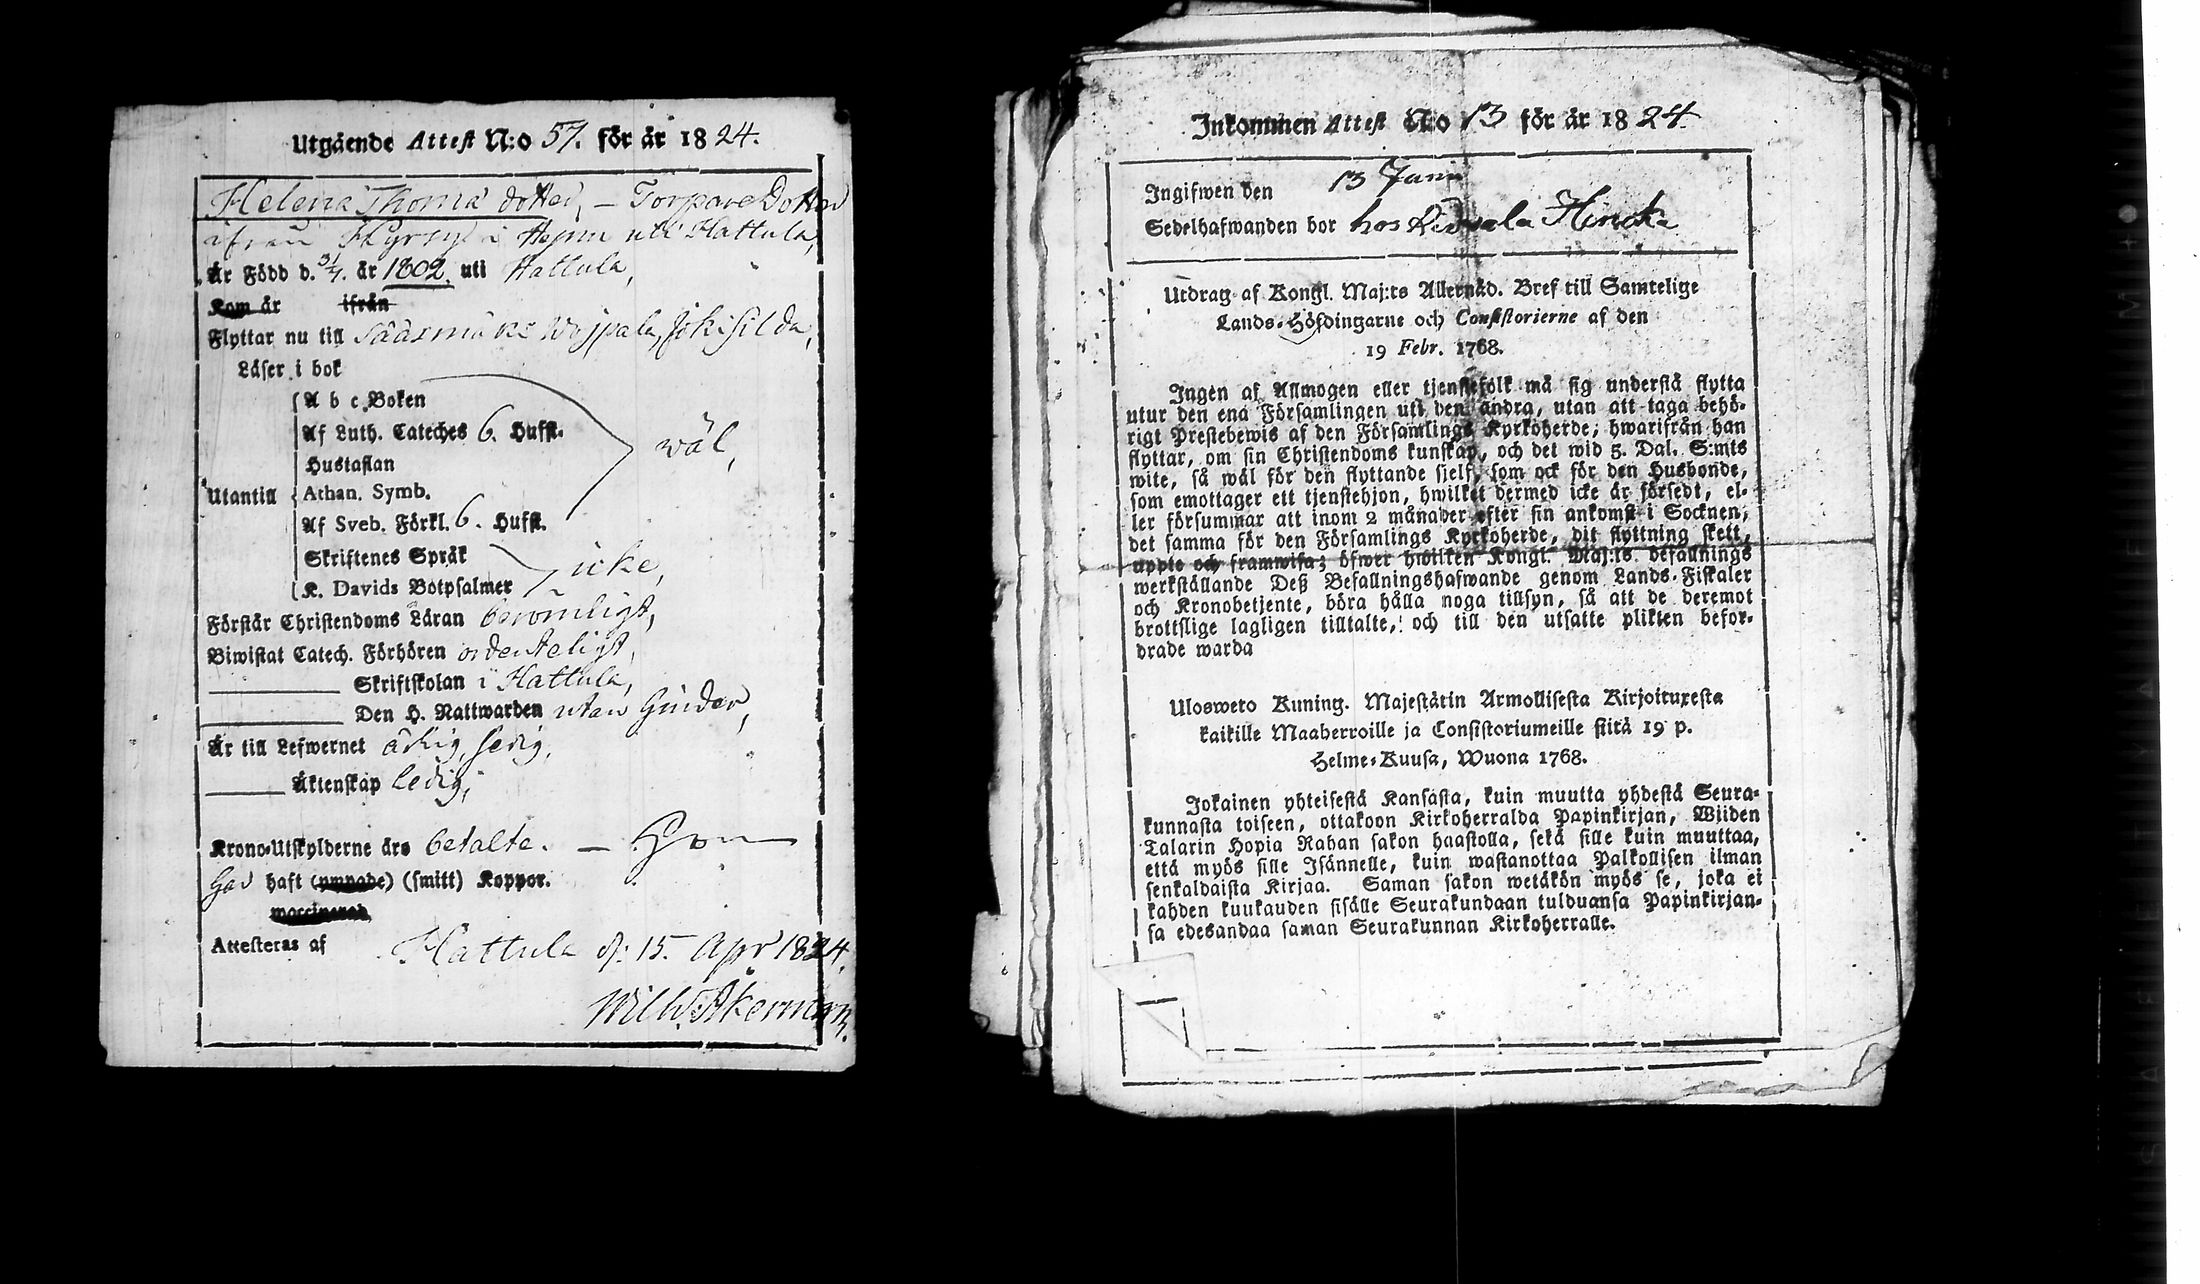 Utgående Attest N:o 57. för år 1824.
Helena Thoma dotter, — Torpare Dotter
ifrån uti Hattula,
Är Född d. 31/7. år 1802. uti Hattula,
Kom år ifrån
Flyttar nu till Sääxmäki Wojpala, Jokisilda,
Läser i bok
A b c Boken
Af Luth. Cateches 6. Hufst.
wäl,
Hustaflan
Utantill
Athan. Symb.
Af Sveb. Förkl. 6. Hufst.
Skriftenes Språk
icke,
K. Davids Botpsalmer
Förstår Christendoms Läran beromligt,
Biwistat Catech. Förhören ordenteligt,
Skriftskolan i Hattula,
Den H. Nattwarden utan hinder,
Är till Lefwernet ärlig, sedig,
Äktenskap ledig,
Krono-Utskylderne äro betalte. — Hon
har haft (ympade) (smitt) Koppor.
waccinerad
Attesteras af Hattula d: 15. Apr 1824.
Wilh. Åkerman.
Inkommen Attest N:o 13 för år 1824
Ingifwen den 13 Junii
Sedelhafwanden bor hos
Utdrag af Kongl. Maj:ts Allernåd. Bref till Samtelige
Lands-Höfdingarne och Consistorierne af den
19 Febr. 1768.
Ingen af Allmogen eller tjenstefolk må sig understå flytta
utur den ena Församlingen uti den andra, utan att taga behö-
rigt Prestebewis af den Församlings Kyrkoherde; hwarifrån han
flyttar, om sin Christendoms kunskap, och det wid 5. Dal. S:mts
wite, så wäl för den flyttande sjelf, som ock för den Husbonde,
som emottager ett tjenstehjon, hwilket dermed icke är försedt, el-
ler försummar att inom 2 månader efter sin ankomst i Socknen,
det samma för den Församlings Kyrkoherde, dit flyttning skett,
uppte och framwisa; öfwer hwilken Kongl. Maj:ts befallnings
werkställande Deß Befallningshafwande genom Lands-Fiskaler
och Kronobetjente, böra hålla noga tillsyn, så att de deremot
brottslige lagligen tilltalte, och till den utsatte plikten befor-
drade warda
Ulosweto Kuning. Majestätin Armollisesta Kirjoituxesta
kaikille Maaherroille ja Consistoriumeille siitä 19 p.
Helme-Kuusa, Wuona 1768.
Jokainen yhteisestä Kansasta, kuin muutta yhdestä Seura-
kunnasta toiseen, ottakoon Kirkoherralda Papinkirjan, Wiiden
Talarin Hopia Rahan sakon haastolla, sekä sille kuin muuttaa,
että myös sille Isännelle, kuin wastanottaa Palkollisen ilman
senkaldaista Kirjaa. Saman sakon wetäkön myös se, joka ei
kahden kuukauden sisälle Seurakundaan tulduansa Papinkirjan-
sa edesandaa saman Seurakunnan Kirkoherralle.